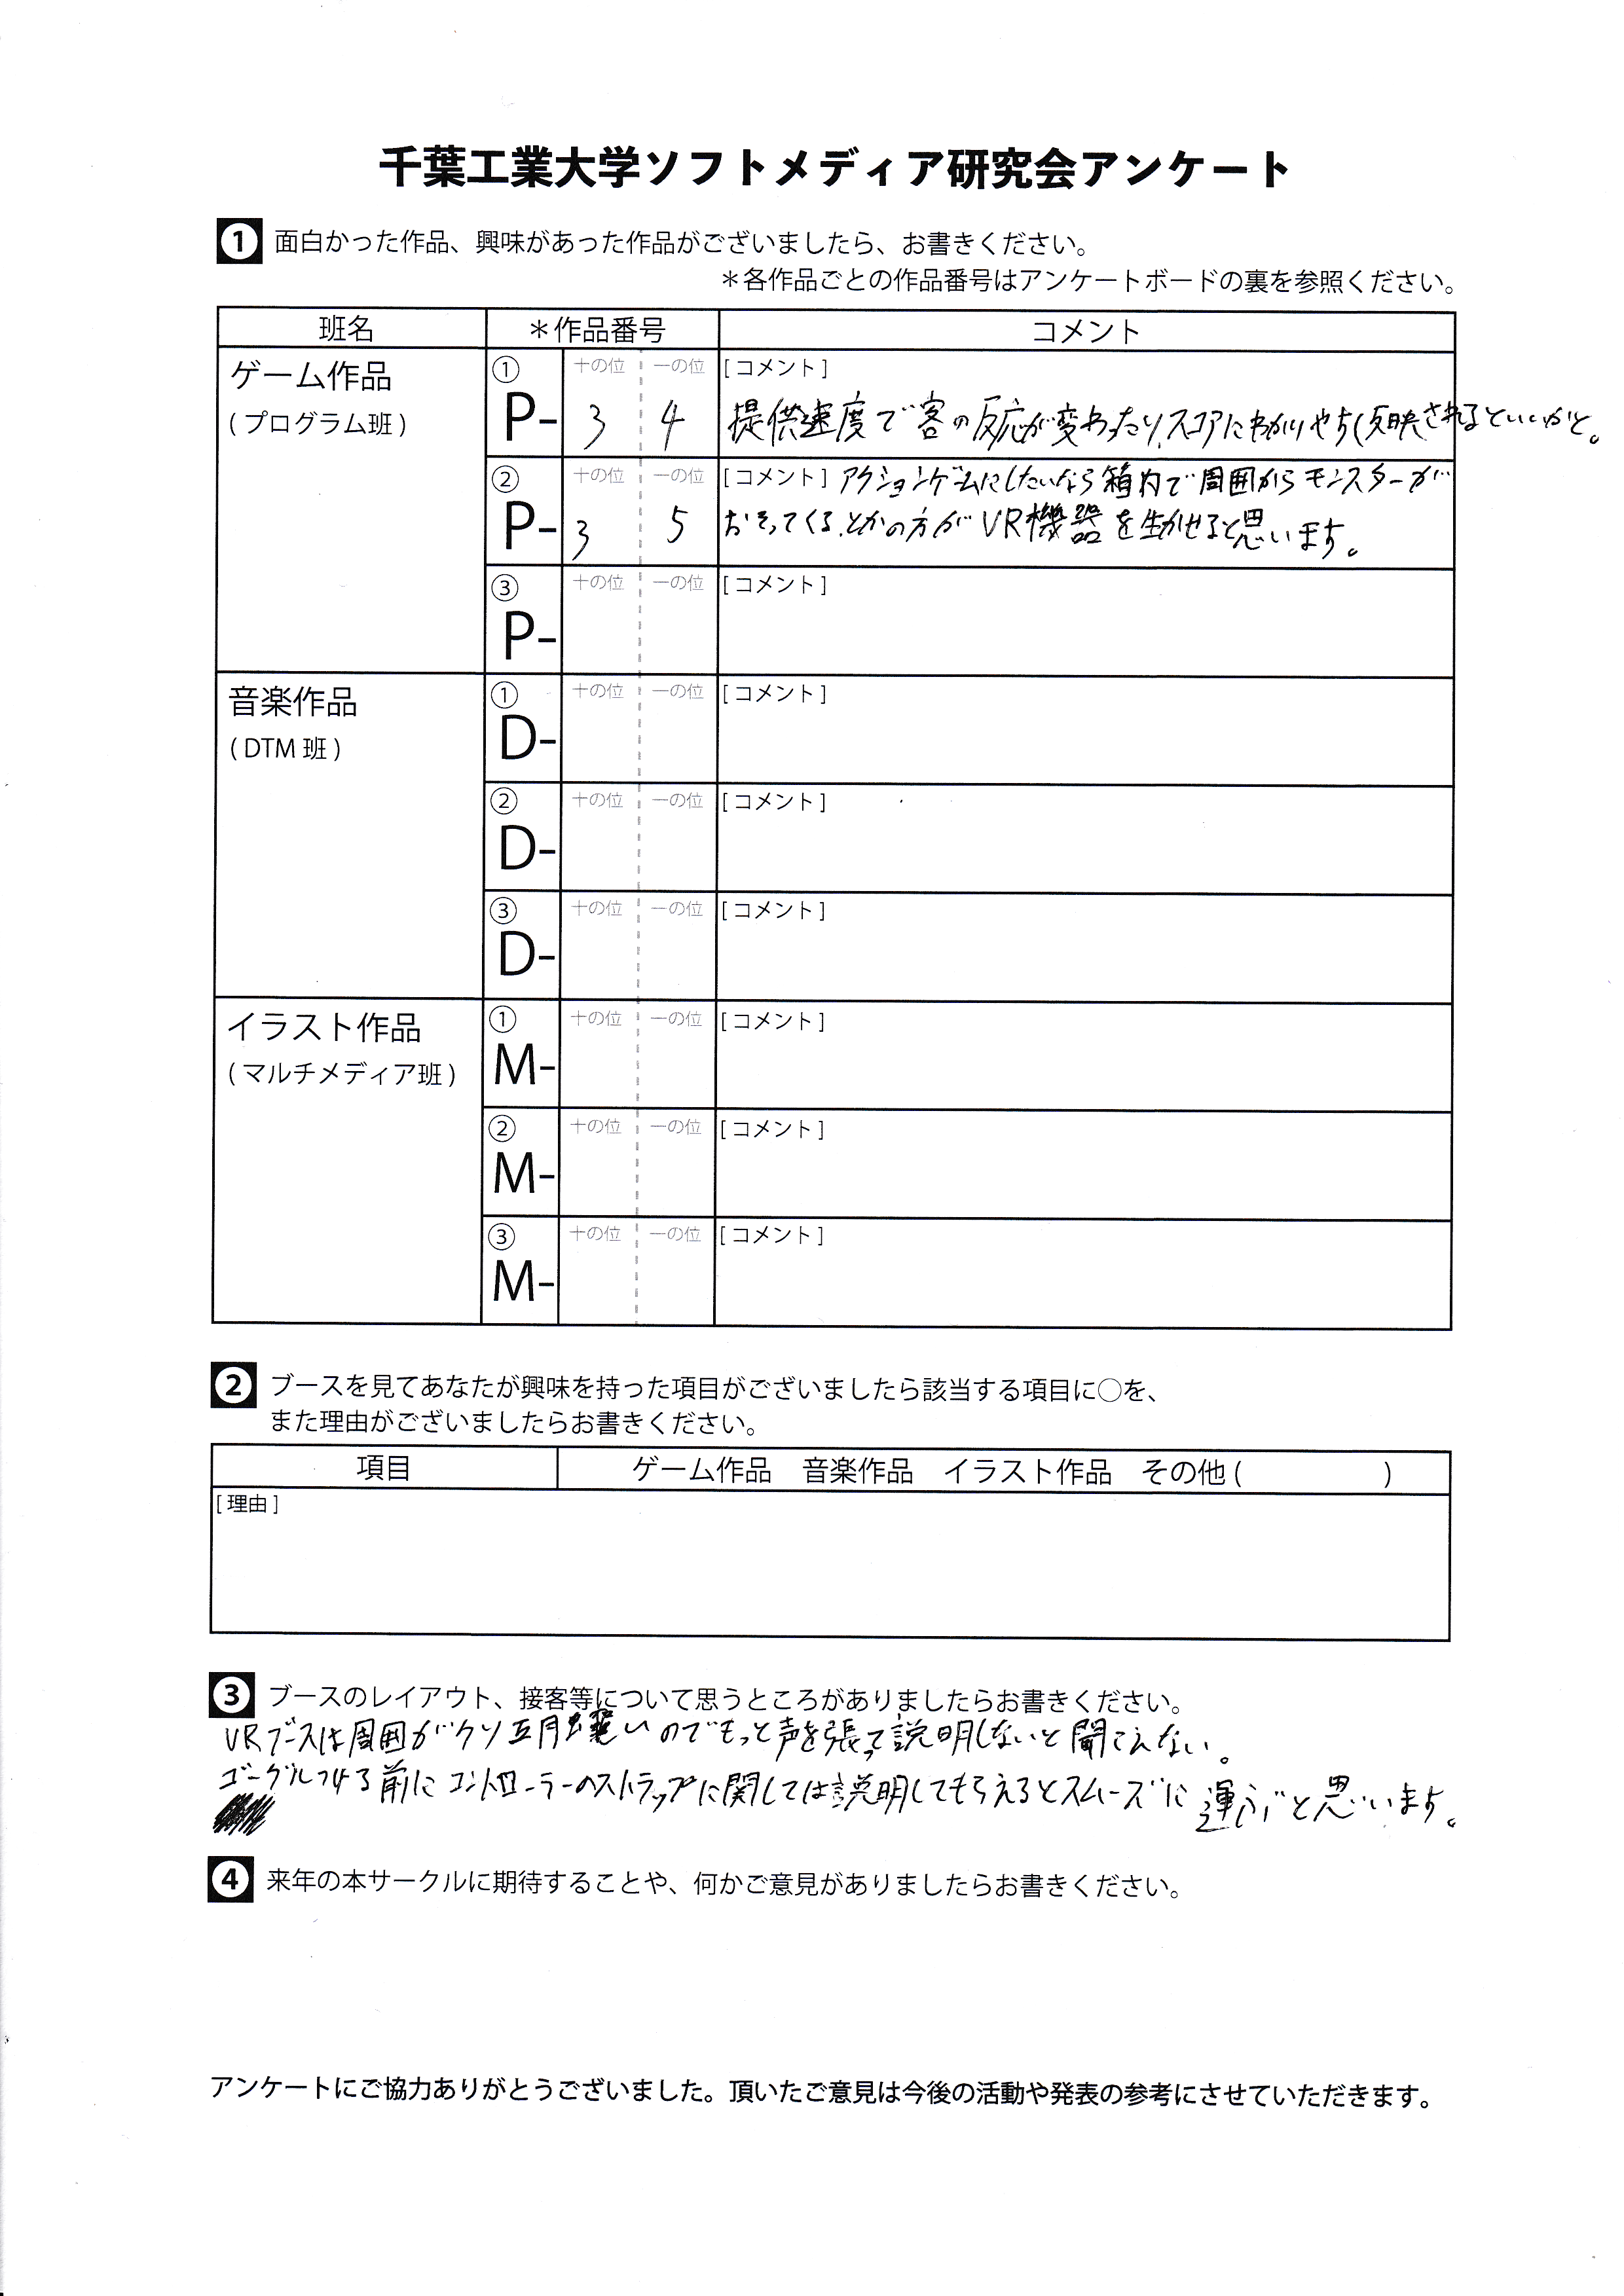 千葉工業大学ソフトメディア研究会アンケート
1 面白かった作品、興味があった作品がございましたら、お書きください。
＊各作品ごとの作品番号はアンケートボードの裏を参照ください。
班名 ＊作品番号 コメント
ゲーム作品
(プログラム班)
① P- 十の位 3 一の位 4 [コメント]
提供速度で客の反応が変わったり、スコアにわかりやすく反映されるといいかと。
② P- 十の位 3 一の位 5 [コメント] アクションゲームにしたいなら箱内で周囲からモンスターが
おそってくる、とかの方がVR機器を生かせると思います。
③ P- 十の位 一の位 [コメント]
音楽作品
(DTM班)
① D- 十の位 一の位 [コメント]
② D- 十の位 一の位 [コメント]
③ D- 十の位 一の位 [コメント]
イラスト作品
(マルチメディア班)
① M- 十の位 一の位 [コメント]
② M- 十の位 一の位 [コメント]
③ M- 十の位 一の位 [コメント]
2 ブースを見てあなたが興味を持った項目がございましたら該当する項目に○を、
また理由がございましたらお書きください。
項目 ゲーム作品 音楽作品 イラスト作品 その他( )
[理由]
3 ブースのレイアウト、接客等について思うところがありましたらお書きください。
VRブースは周囲がクソ いのでもっと声を張って説明しないと聞こえない。
ゴーグルつける前にコントローラーのストラップに関しては説明してもらえるとスムーズに運ぶと思います。
4 来年の本サークルに期待することや、何かご意見がありましたらお書きください。
アンケートにご協力ありがとうございました。頂いたご意見は今後の活動や発表の参考にさせていただきます。